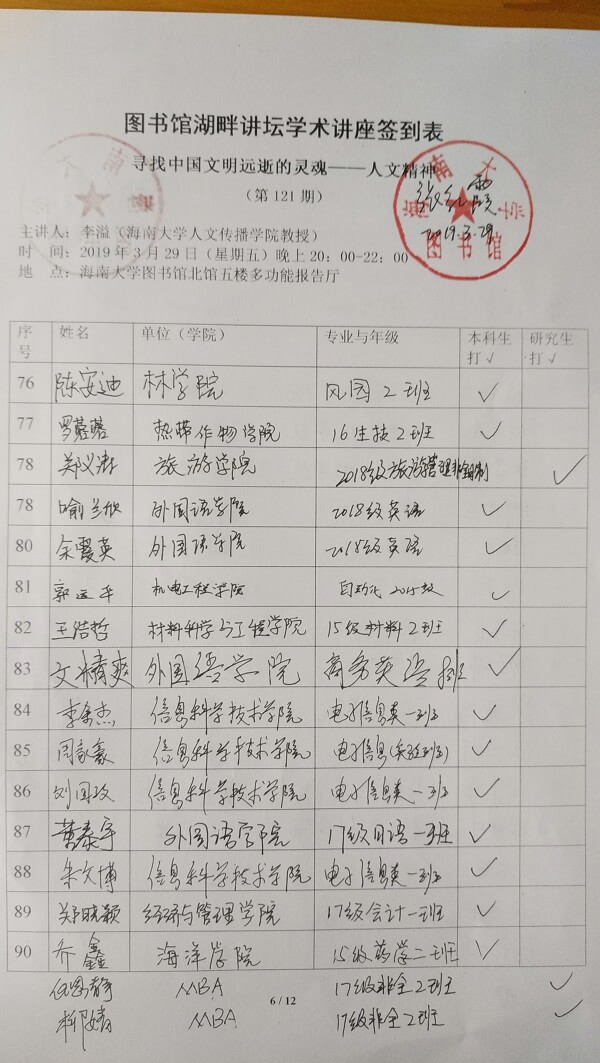 图书馆湖畔讲坛学术讲座签到表
寻找中国文明远逝的灵魂——人文精神
（第 121 期）
海南大学
图书馆
2019.3.29
主讲人：李溢（海南大学人文传播学院教授）
时 间：2019 年 3 月 29 日（星期五）晚上 20：00-22：00
地 点：海南大学图书馆北馆五楼多功能报告厅
序号 姓名 单位（学院） 专业与年级 本科生打√ 研究生打√
76 陈安迪 林学院 风园2班 ✓
77 罗蓉 热带作物学院 16生技2班 ✓
78 郑义 旅游学院 2018级旅游管理非全日制 ✓
78 喻兰欣 外国语学院 2018级英语 ✓
80 余霞英 外国语学院 2018级英语 ✓
81 郭运平 机电工程学院 自动化 2015级 ✓
82 王浩哲 材料科学与工程学院 15级材料2班 ✓
83 文精爽 外国语学院 商务英语 ✓
84 李余杰 信息科学技术学院 电子信息类一班 ✓
85 周家豪 信息科学技术学院 电子信息(实验班) ✓
86 刘国政 信息科学技术学院 电子信息类一班 ✓
87 黄泰宇 外国语学院 17级日语一班 ✓
88 朱文博 信息科学技术学院 电子信息类一班 ✓
89 郑晓颖 经济与管理学院 17级会计一班 ✓
90 乔鑫 海洋学院 15级药学二班 ✓
静 MBA 17级非全2班 ✓
柳婧 MBA 17级非全2班 ✓
6 / 12